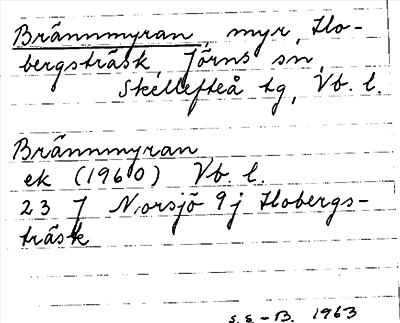 Brännmyran, myr, Ho-
bergsträsk, Jörns sn,
Skellefteå tg, Vb. l.
Brännmyran
ek (1960) Vb. l.
23 J Norsjö 9 j Hobergs-
träsk
S. S. - B. 1963